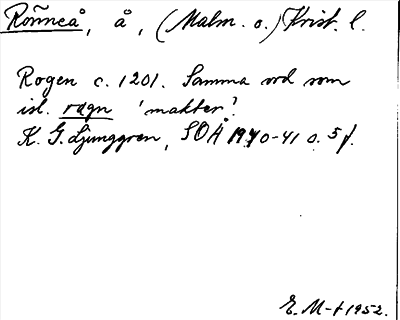 Rönneå, å, (Malm. o.) Krist. l.
Rogen c. 1201. Samma ord som
isl. ragn 'makter'?
K. G. Ljunggren, SOÅ 1940-41 s. 5 f.
E. M-t 1952.